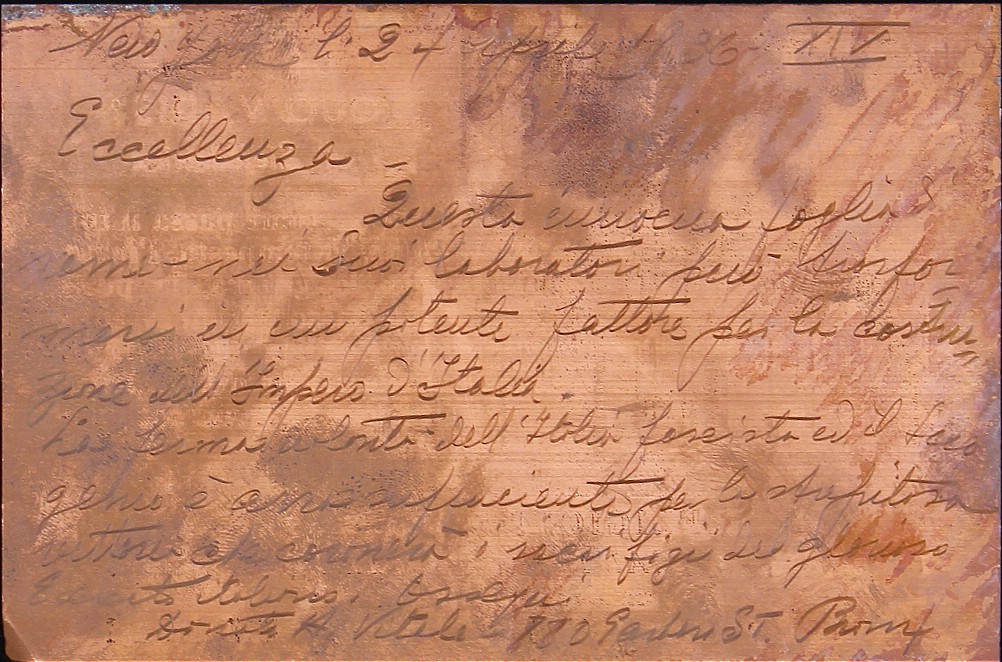 New York li 24 Aprile 1936 XIV
Eccellenza -
Questa innocua foglia di
rame - nei Suoi laboratori può trasfor-
marsi in un potente fattore per la costru-
zione dell'Impero d'Italia.
La ferma volontà dell'Italia fascista ed il Suo
genio è più sufficiente per la strepitosa
vittoria che coronerà i sacrifizi del glorioso
Esercito Italiano. Ossequi
Donato A. Vitale - 770 Garden St. Bronx